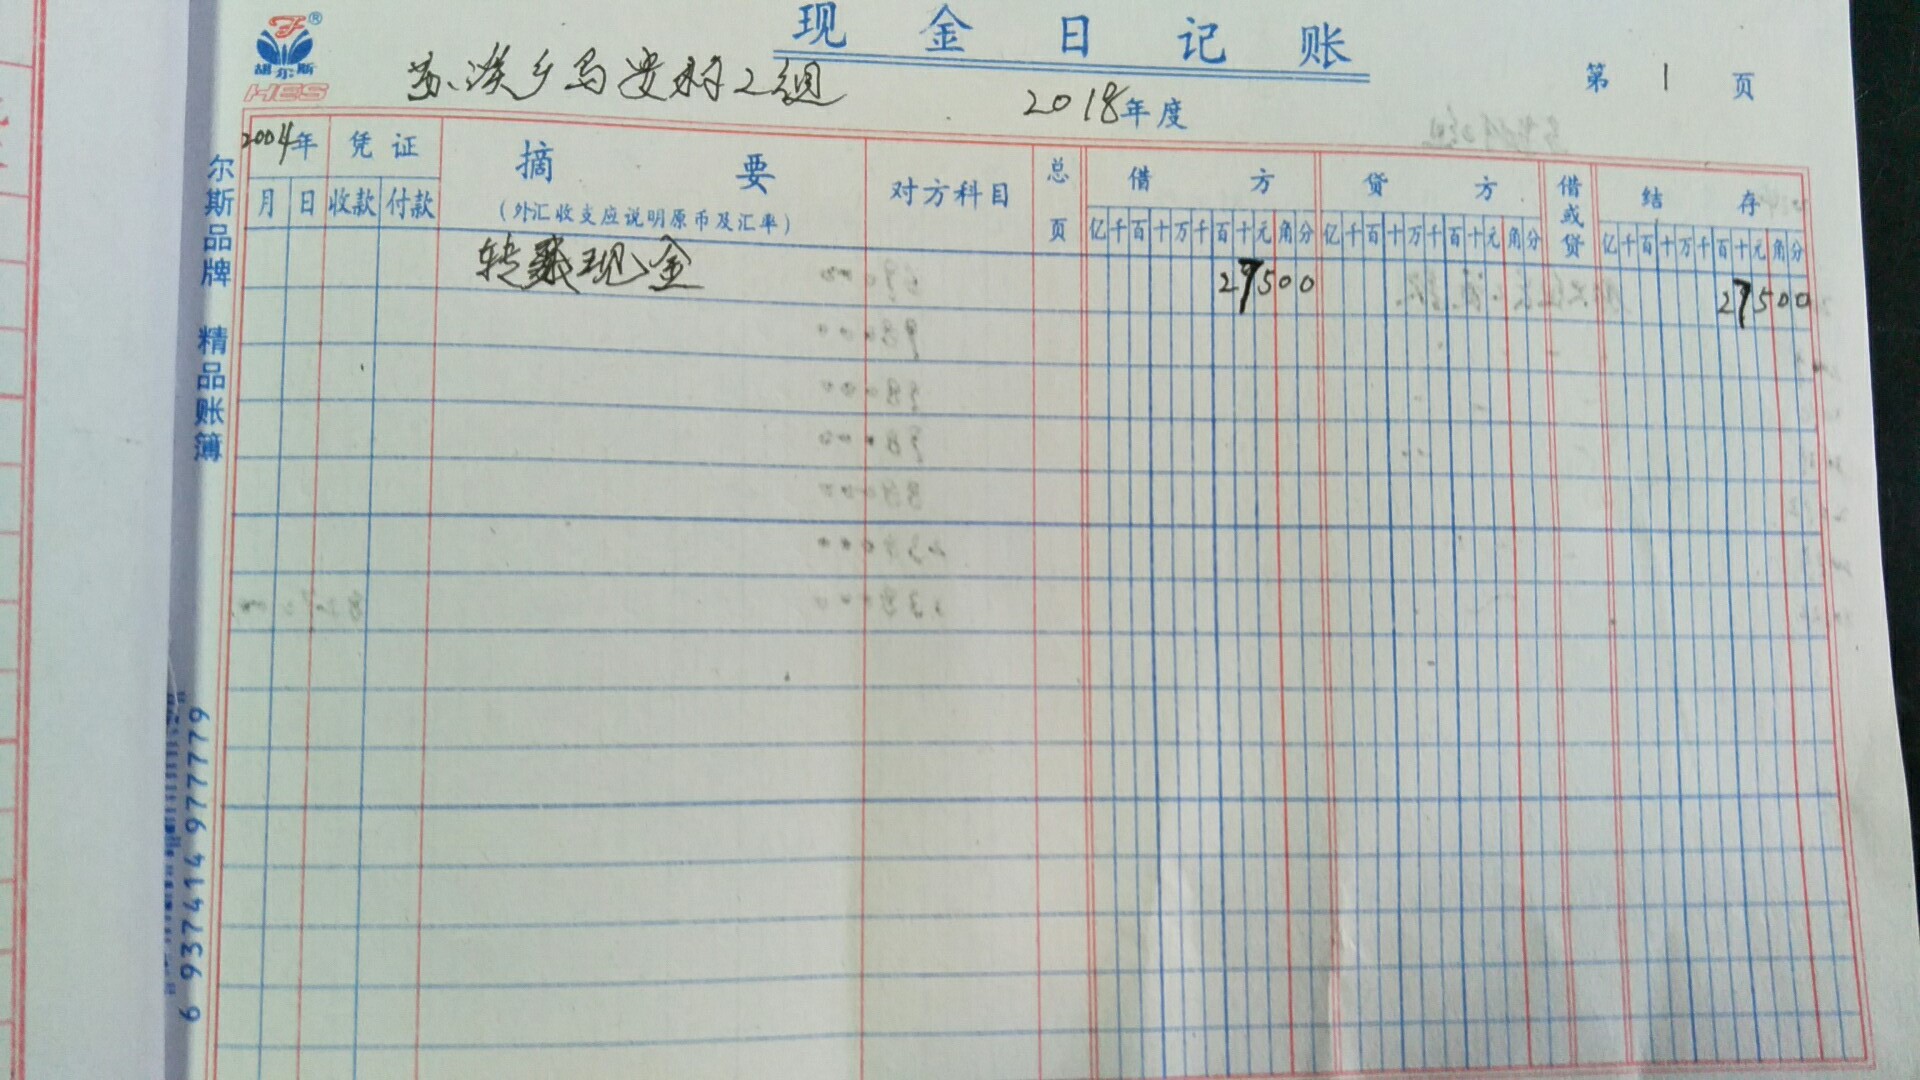 现金日记账
胡尔斯
HES
2018年度
第 1 页
2004年 凭证 摘要 对方科目 总页 借方 贷方 借或贷 结存
月 日 收款 付款 (外汇收支应说明原币及汇率) 亿千百十万千百十元角分 亿千百十万千百十元角分 亿千百十万千百十元角分
现金 27500 27500
尔斯品牌 精品账簿
6 937414 967779